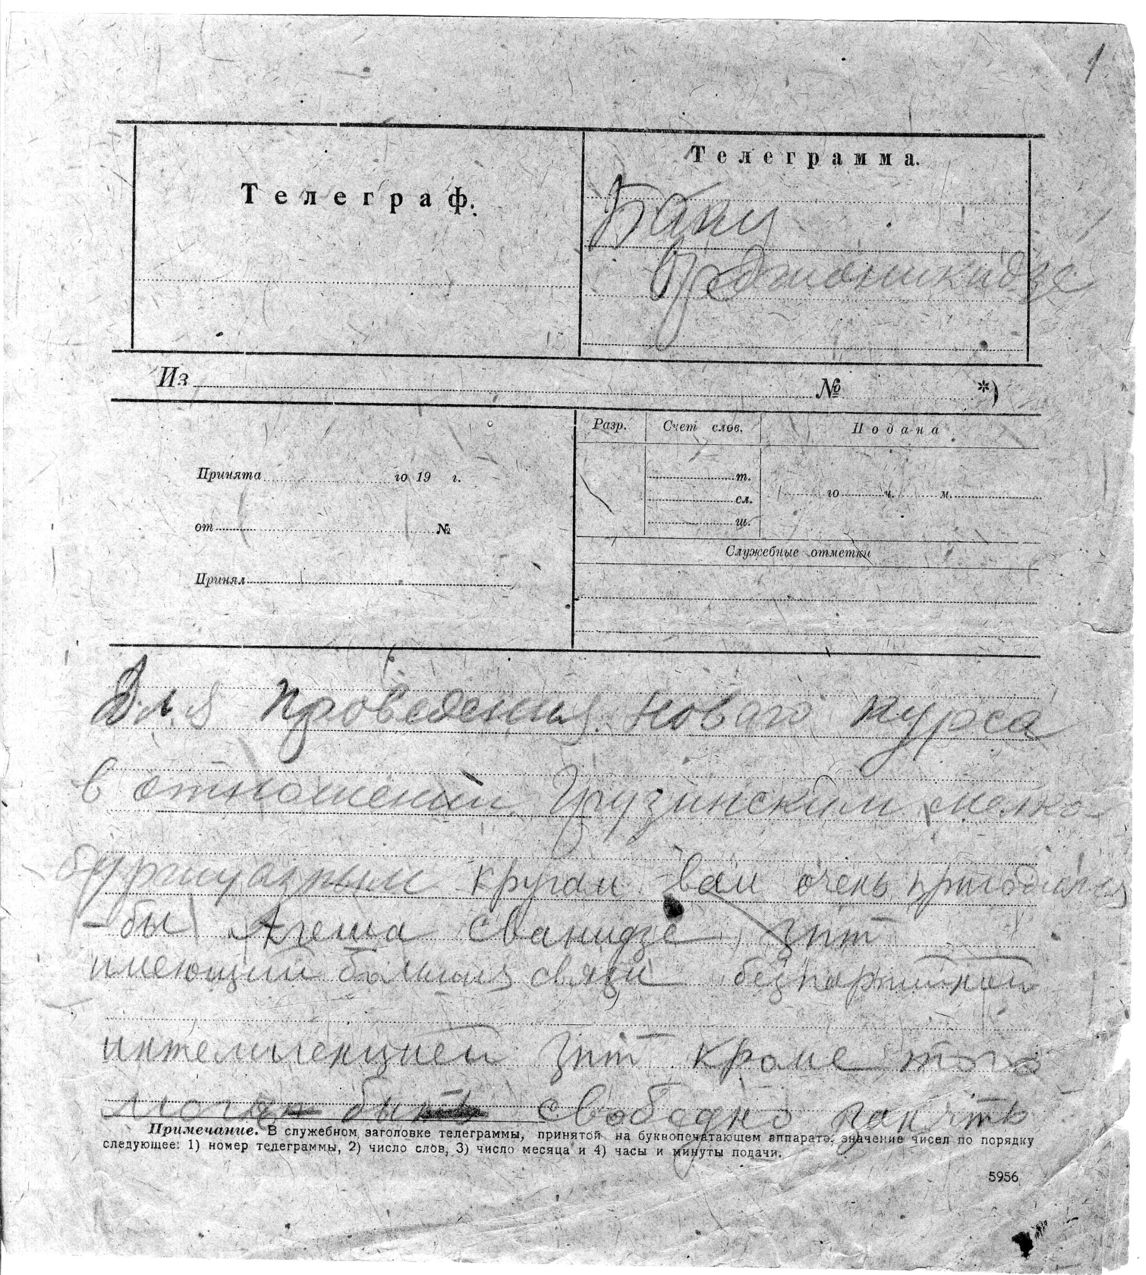 1
Телеграф.
Телеграмма.
Баку
Орджоникидзе
Из № *)
Принята го 19 г.
от №
Принял
Разр. Счет слов. Подана
т.
сл.
ш.
го ч. м.
Служебные отметки
Для проведения новаго курса
в отношении Грузинским мелко-
буржуазным кругам вам очень пригодился
-бы Алеша Сванидзе зпт
имеющий большия связи безпартийной
интеллигенцией зпт кроме того
могли быть свободно
Примечание. В служебном заголовке телеграммы, принятой на буквопечатающем аппарате, значение чисел по порядку
следующее: 1) номер телеграммы, 2) число слов, 3) число месяца и 4) часы и минуты подачи.
5956